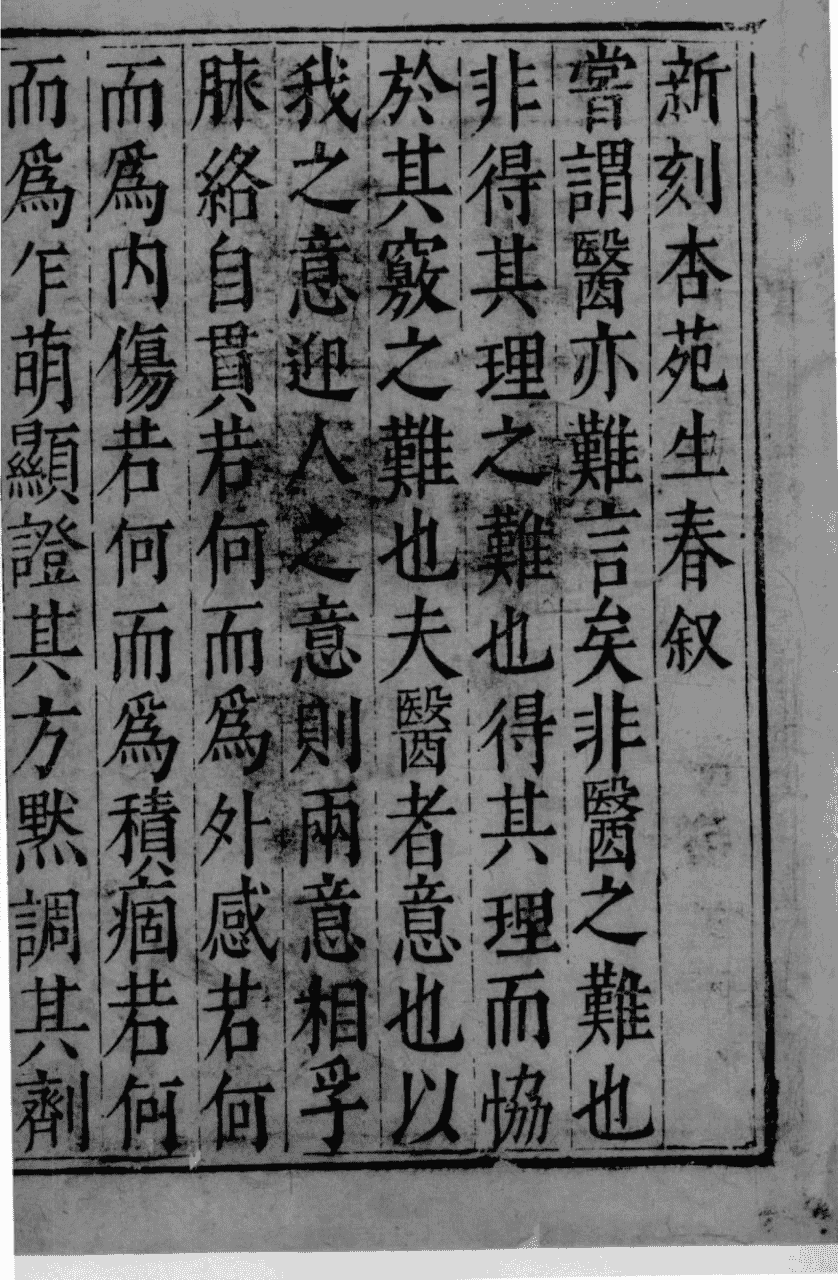 新刻杏苑生春叙
嘗謂醫亦難言矣非醫之難也
非得其理之難也得其理而恊
於其竅之難也夫醫者意也以
我之意迎人之意則兩意相孚
脉絡自貫若何而爲外感若何
而爲内傷若何而爲積痼若何
而爲乍萌顯證其方黙調其劑